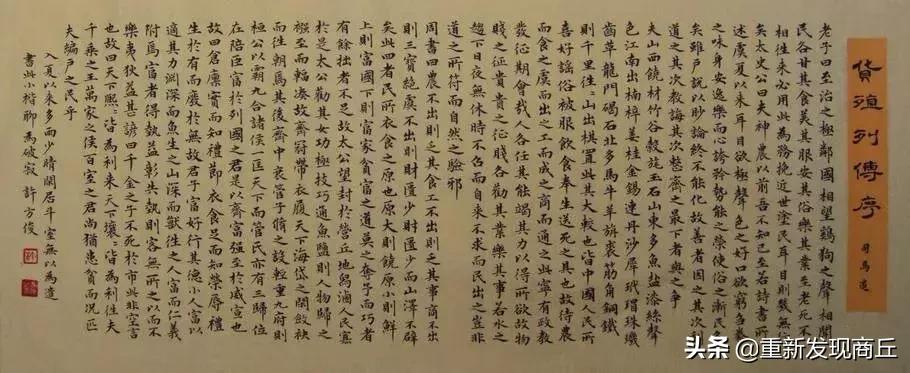 貨殖列傳序
司馬遷
老子曰至治之極鄰國相望鷄狗之聲相聞
民各甘其食美其服安其俗樂其業至老死不
相往來必用此為務挽近世塗民耳目則幾無行
矣太史公曰夫神農以前吾不知已至若詩書所
述虞夏以來耳目欲極聲色之好口欲窮芻豢
之味身安逸樂而心誇矜勢能之榮使俗之漸民久
矣雖戶說以眇論終不能化故善者因之其次利
道之其次教誨其次整齊之最下者與之爭
夫山西饒材竹穀旄玉石山東多魚鹽漆絲聲
色江南出柟梓薑桂金錫連丹沙犀玳瑁珠璣
齒革龍門碣石北多馬牛羊旃裘筋角銅鐵
則千里往往山出棋置此其大較也皆中國人民所
喜好謠俗被服飲食奉生送死之具也故待農
而食之虞而出之工而成之商而通之此寧有政教
發征期會哉人各任其能竭其力以得所欲故物
賤之征貴貴之征賤各勸其業樂其事若水之
趨下日夜無休時不召而自來不求而民出之豈非
道之所符而自然之驗邪
周書曰農不出則乏其食工不出則乏其事商不出
則三寶絕虞不出則財匱少財匱少而山澤不辟
矣此四者民所衣食之原也原大則饒原小則鮮
上則富國下則富家貧富之道莫之奪予而巧者
有餘拙者不足故太公望封於營丘地潟鹵人民寡
於是太公勸其女功極技巧通魚鹽則人物歸之
繦至而輻湊故齊冠帶衣履天下海岱之閒斂袂
而往朝焉其後齊中衰管子脩之設輕重九府則
桓公以霸九合諸侯一匡天下而管氏亦有三歸位
在陪臣富於列國之君是以齊富強至於威宣也
故曰倉廩實而知禮節衣食足而知榮辱禮
生於有而廢於無故君子富好行其德小人富以
適其力淵深而魚生之山深而獸往之人富而仁義
附焉富者得執益彰失執則客無所之以而不
樂夷狄益甚諺曰千金之子不死於市此非空言
也故曰天下熙熙皆為利來天下壤壤皆為利往夫
千乘之王萬家之侯百室之君尚猶患貧而況匹
夫編戶之民乎
入夏以來多雨少晴閒居斗室無以為遣
書此小楷聊為破寂 許方俊
头条 @重新发现商丘